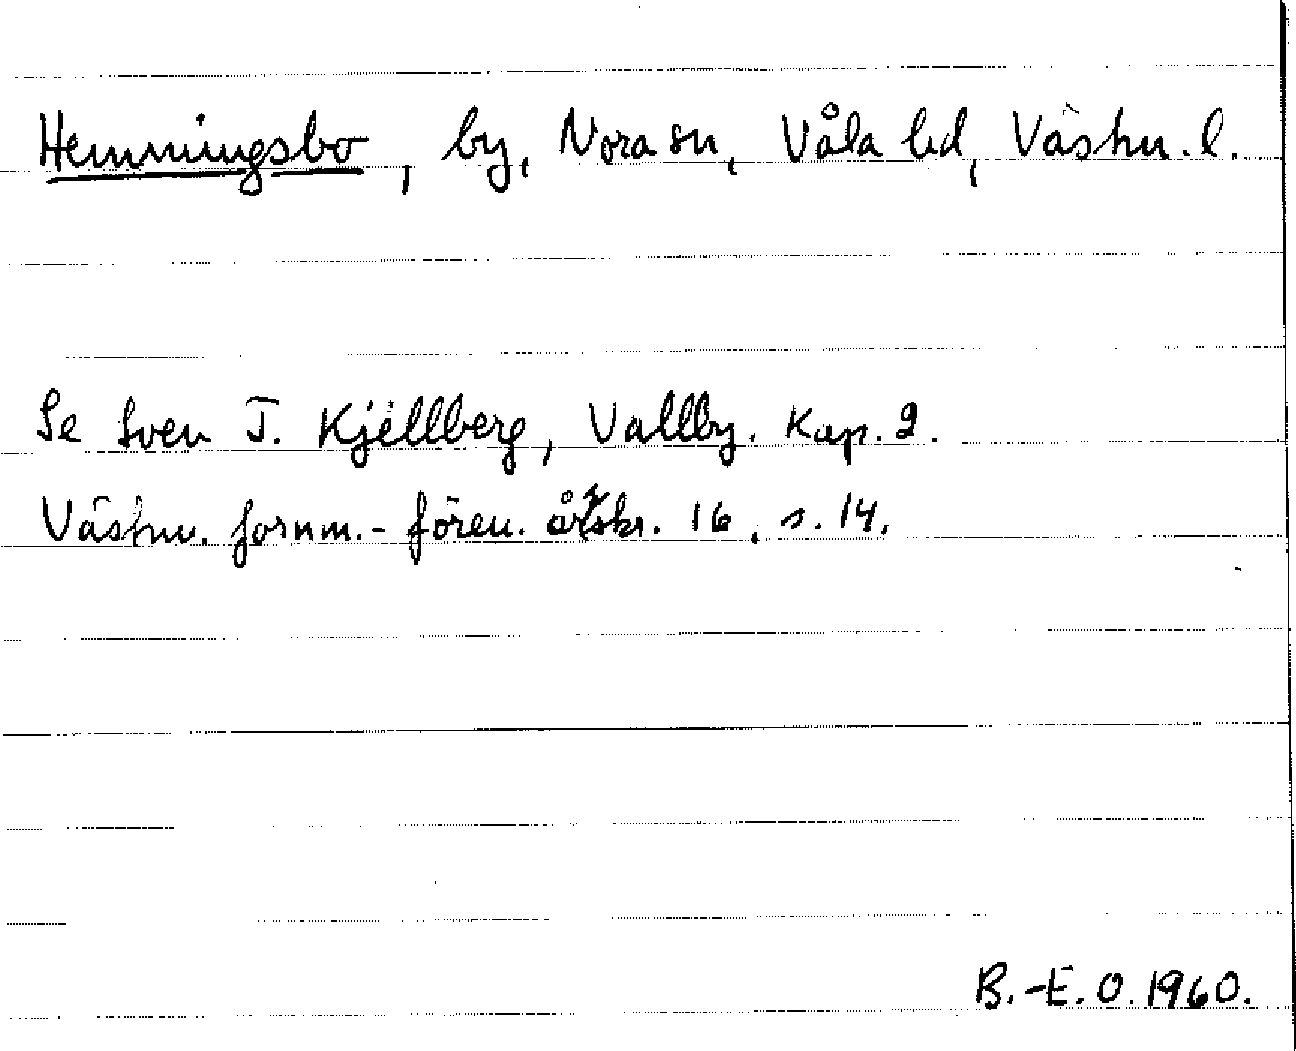 Hemmingsbo, by, Nora sn, Våla hd, Västm. l.
Se Sven T. Kjellberg, Vallby. Kap. 2.
Västm. fornm.-fören. årsskr. 16, s. 14.
B.-E. O. 1960.